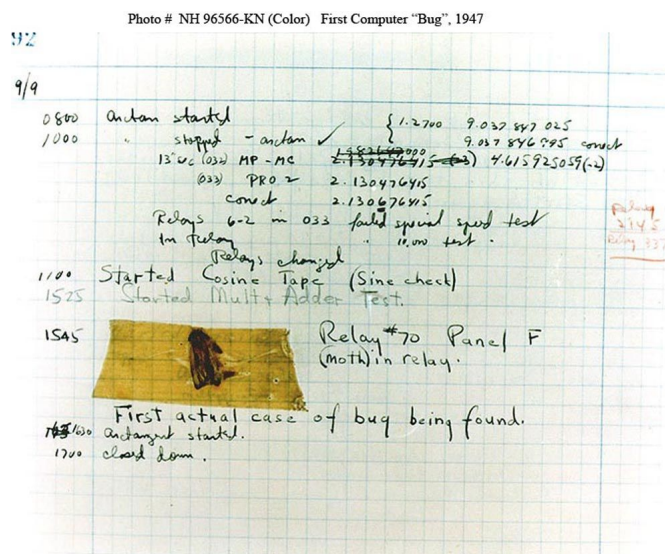 Photo # NH 96566-KN (Color) First Computer “Bug”, 1947
92
9/9
0800 Antan started { 1.2700 9.037 847 025
1000 " stopped - antan ✓ 9.037 846 995 conect
13" uc (032) MP - MC 2.130476415 (-3) 4.615925059(-2)
(033) PRO 2 2.130476415
conect 2.130676415
Relays 6-2 in 033 failed special speed test
In Relay " 10.000 test .
Relays changed
Relay
2145
Relay 337
1100 Started Cosine Tape (Sine check)
1525 Started Mult + Adder Test.
1545 Relay #70 Panel F
(moth) in relay.
First actual case of bug being found.
1630 antangent started.
1700 closed down.